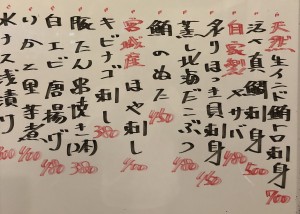 天然生インド鮪トロ刺身 700
活〆真鯛刺身 500
自家製〆サバ 480
炙りほっき貝刺身 480
蒸し北海だこぶつ 450
鮪のぬた 450
宮城産ほや刺し 400
キビナゴ刺し 380
豚たん串焼き(1本) 380
白エビ唐揚げ 480
いかと里芋煮 400
水ナス浅漬け 400